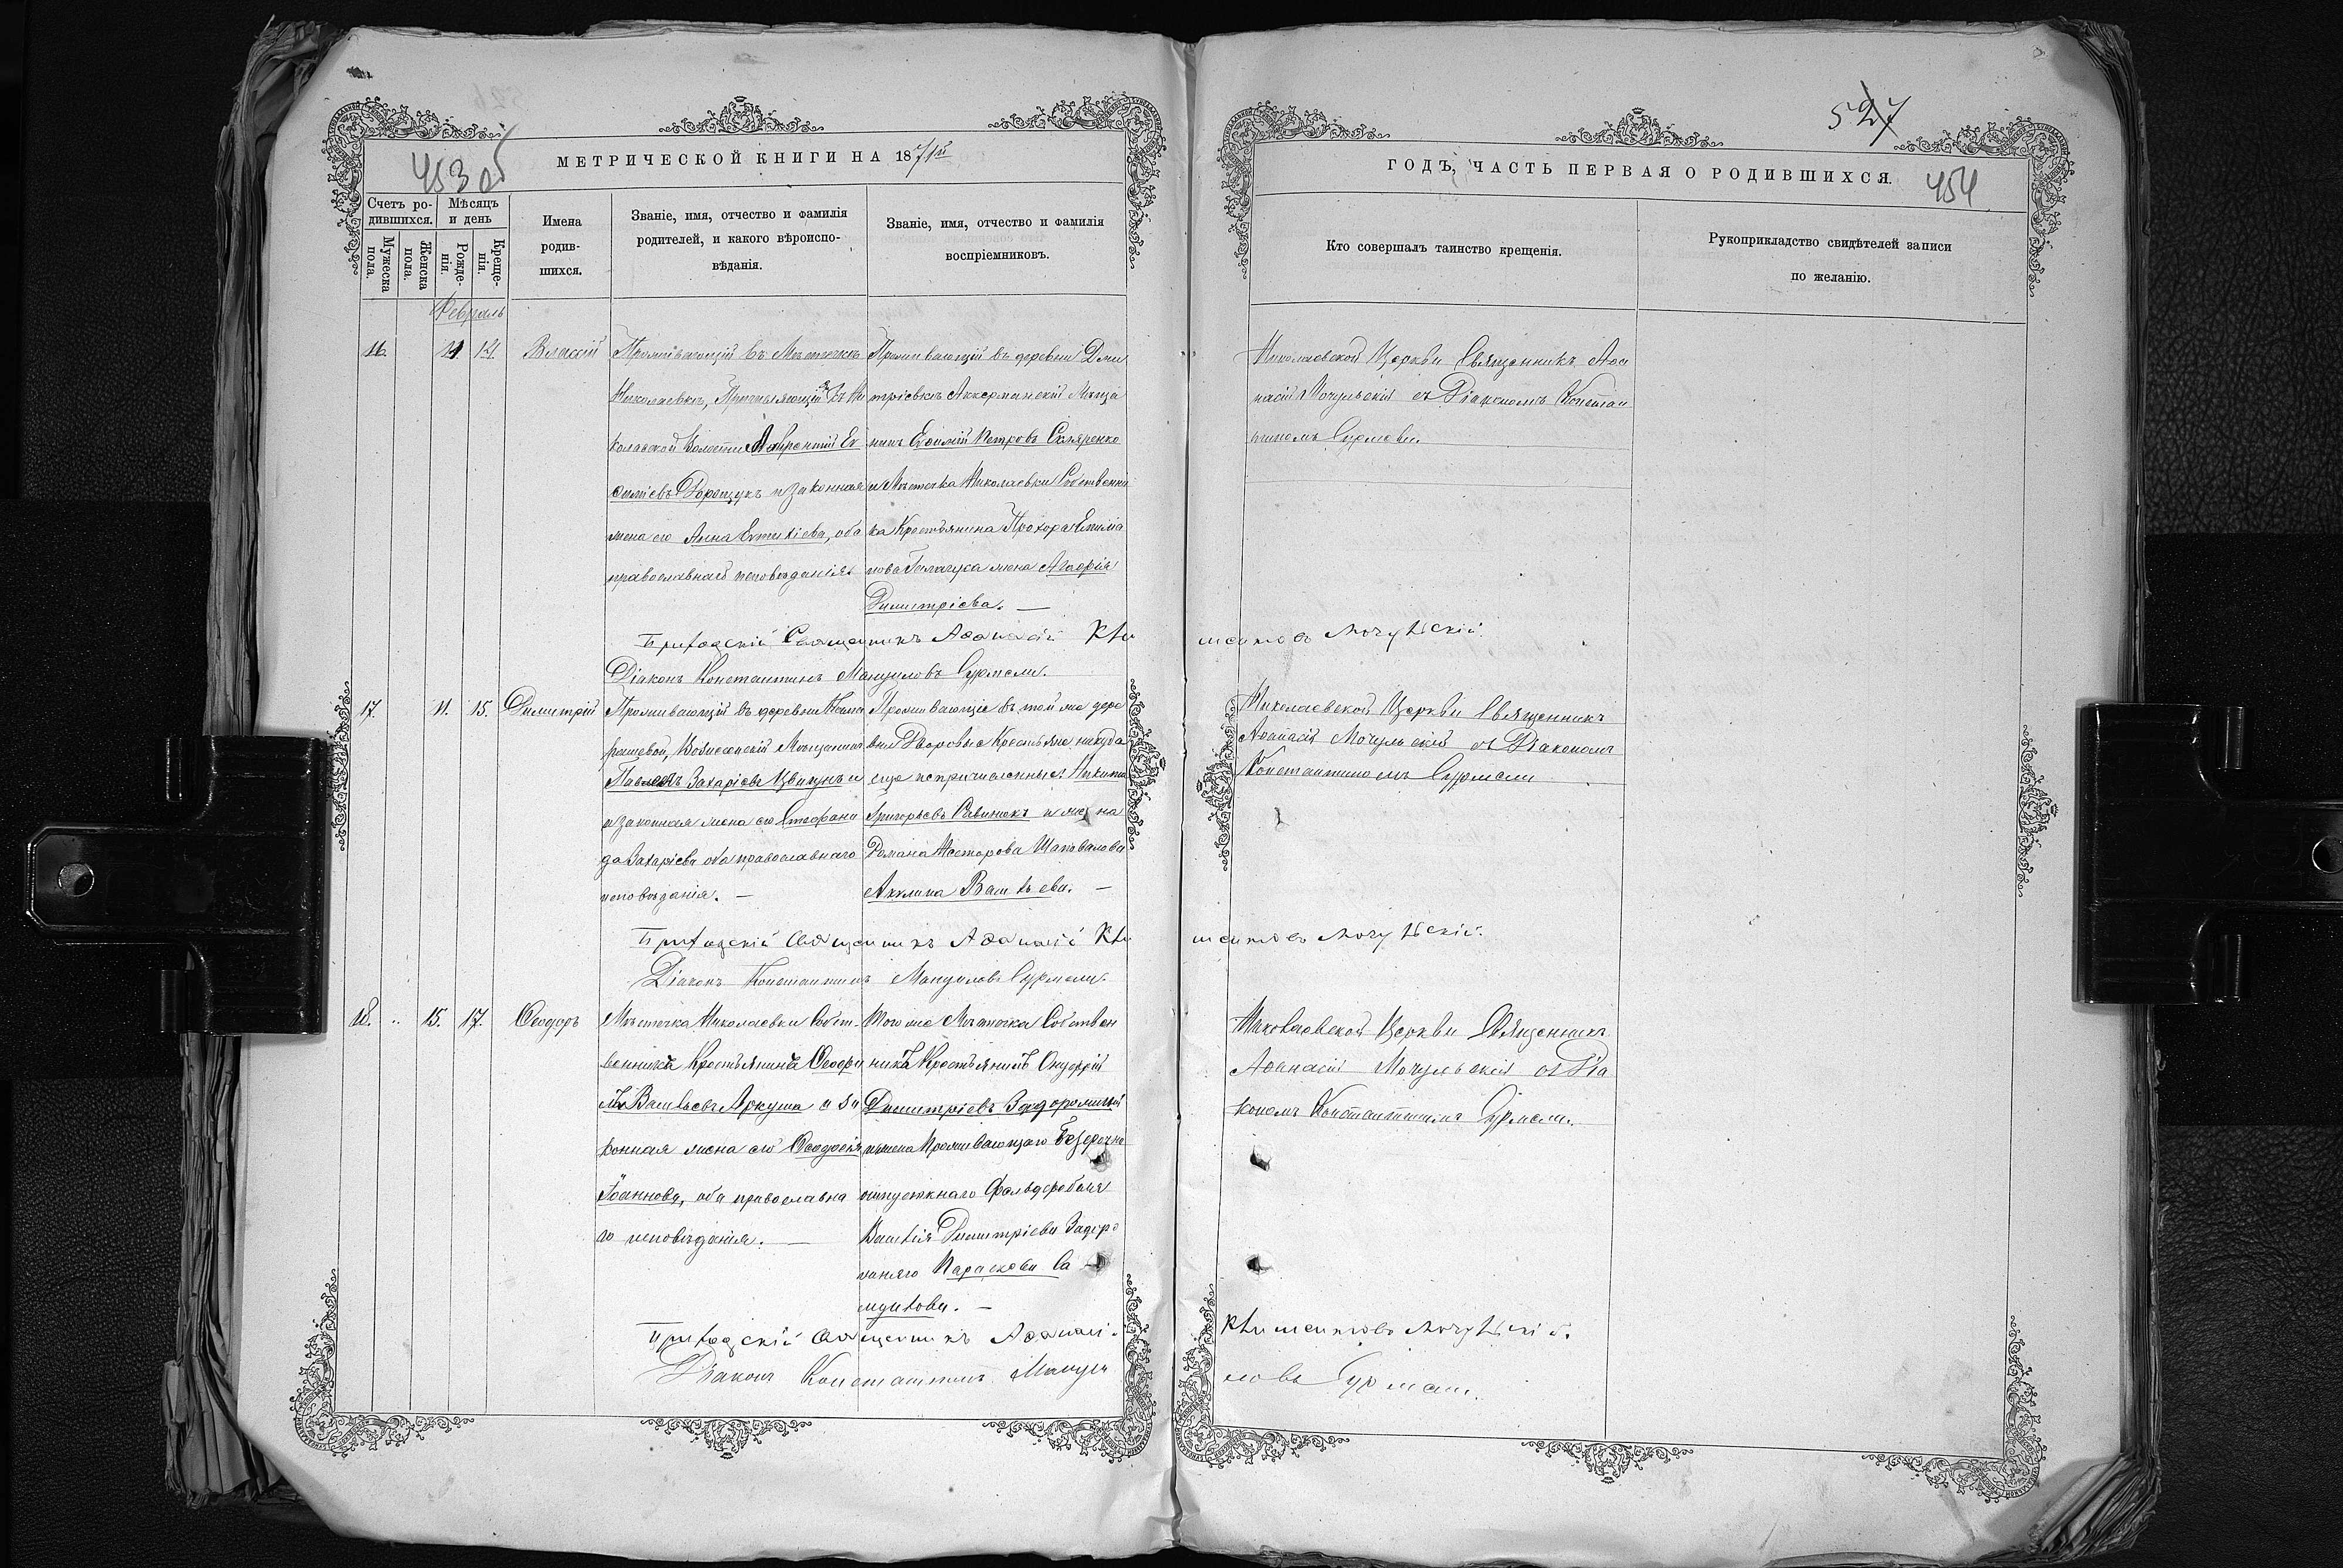 527
453 об
454
МЕТРИЧЕСКОЙ КНИГИ НА 1871й
ГОДЪ, ЧАСТЬ ПЕРВАЯ О РОДИВШИХСЯ.
Счетъ ро-
дившихся.
Мужеска
пола.
Женска
пола.
Мѣсяцъ
и день
Рожде-
нія.
Креще-
нія.
Имена
родив-
шихся.
Званіе, имя, отчество и фамилія
родителей, и какого вѣроиспо-
вѣданія.
Званіе, имя, отчество и фамилія
воспріемниковъ.
Кто совершалъ таинство крещенія.
Рукоприкладство свидѣтелей записи
по желанію.
Февраль
16.
Власій
Проживающій въ Мѣстечкѣ
Николаевкѣ, къ Ни
колаевской Волости Лаврентій Ев
фиміевъ Дорощукъ и законная
жена его Анна Евтихіева, оба
православнаго исповѣданія.
Проживающій въ деревни Дми
тріевкѣ Аккерманскій Мѣща
нинъ Евфимій Петровъ Скляренко
и Мѣстечка Николаевки Собственни
ка Крестьянина Прохора
нова жена Агафія
Димитріева. —
Николаевской Церкви Священникъ Афа
насій Мочульскій съ Діакономъ Констан
тиномъ Сурмели.
Приходскій Священникъ Афанасій Кли
ментовъ Мочульскій.
Діаконъ Константинъ Мануиловъ Сурмели.
17. 11. 15.
Димитрій
Проживающій въ деревни
Вознесенскій Мѣщанинъ
Павелъ Захаріевъ и
и законная жена его Стефани
да Захаріева оба православнаго
исповѣданія. —
Проживающіе въ той же дере
вни Дворовые Крестьяне никуда
еще непричисленные: Никита
Григорьевъ Савинокъ и жена
Романа Нестерова Шаповалова
Акилина Васильева. —
Николаевской Церкви Священникъ
Афанасій Мочульскій съ Діакономъ
Константиномъ Сурмели
Приходскій Священникъ Афанасій Кли
ментовъ Мочульскій.
Діаконъ Константинъ Мануиловъ Сурмели.
18. 15. 17.
Феодоръ
Мѣстечка Николаевки Собст-
венникъ Крестьянинъ Феофи
лъ Васильевъ Аркуша и за
конная жена его Феодосія
Іоаннова, оба православна
го исповѣданія. —
Того же Мѣстечка Собствен
никъ Крестьянинъ Онуфрій
Димитріевъ Задорожный
и жена Проживающаго Безсрочно
отпускнаго Фельдфебеля
Василія Димитріева Задоро
жняго Параскева Са
муилова. —
Николаевской Церкви Священникъ
Афанасій Мочульскій съ Діа
кономъ Константиномъ Сурмели.
Приходскій Священникъ Афанасій
Климентовъ Мочульскій.
Діаконъ Константинъ Мануи
ловъ Сурмели.